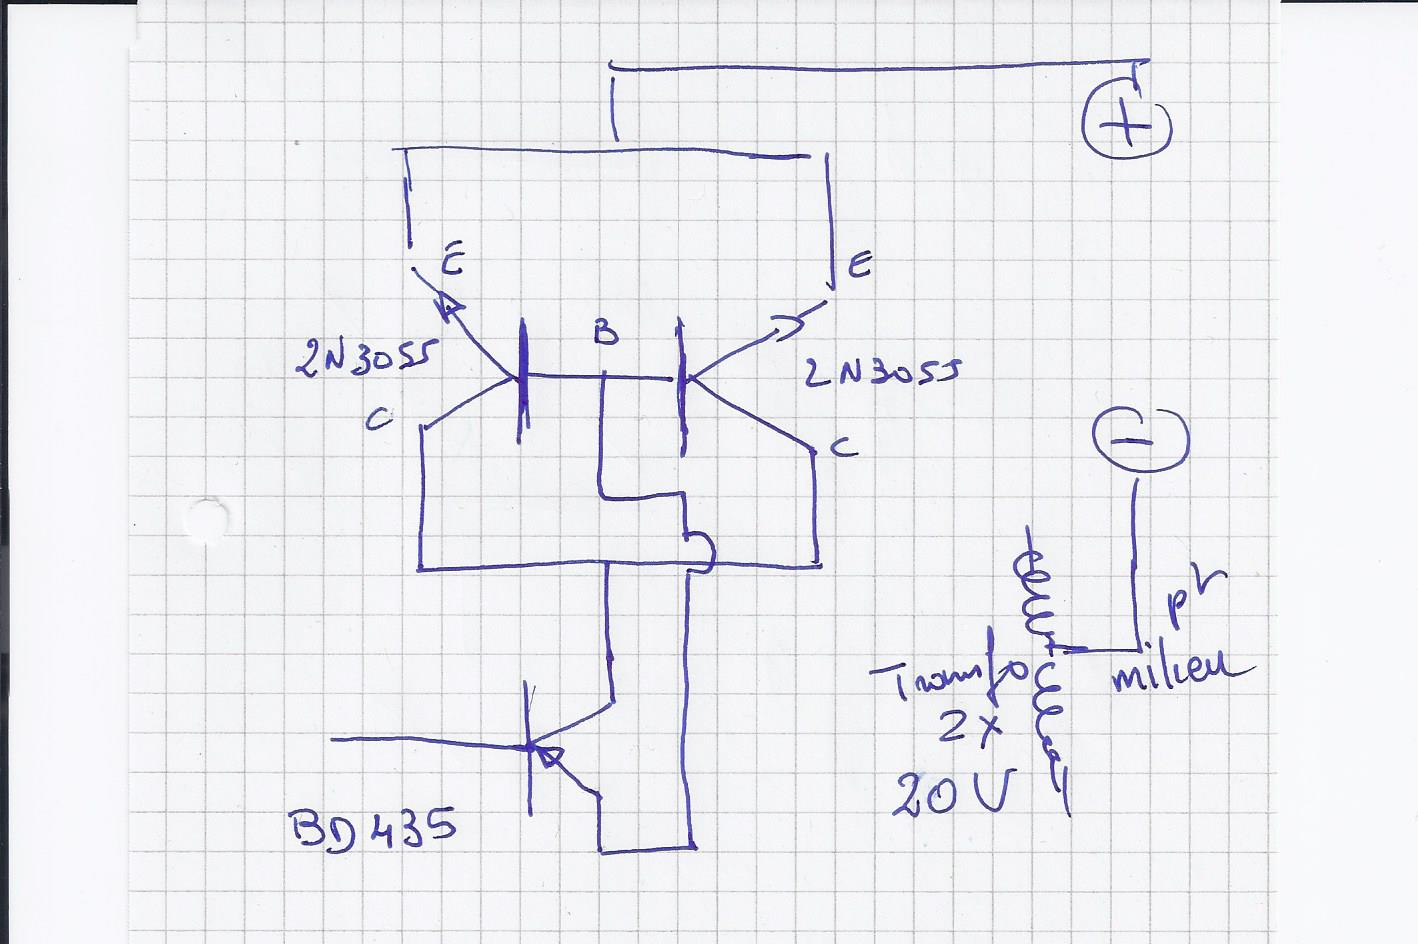 +
E
E
B
2N3055
2N3055
C
C
−
pt
milieu
Transfo
2x
20V
BD435